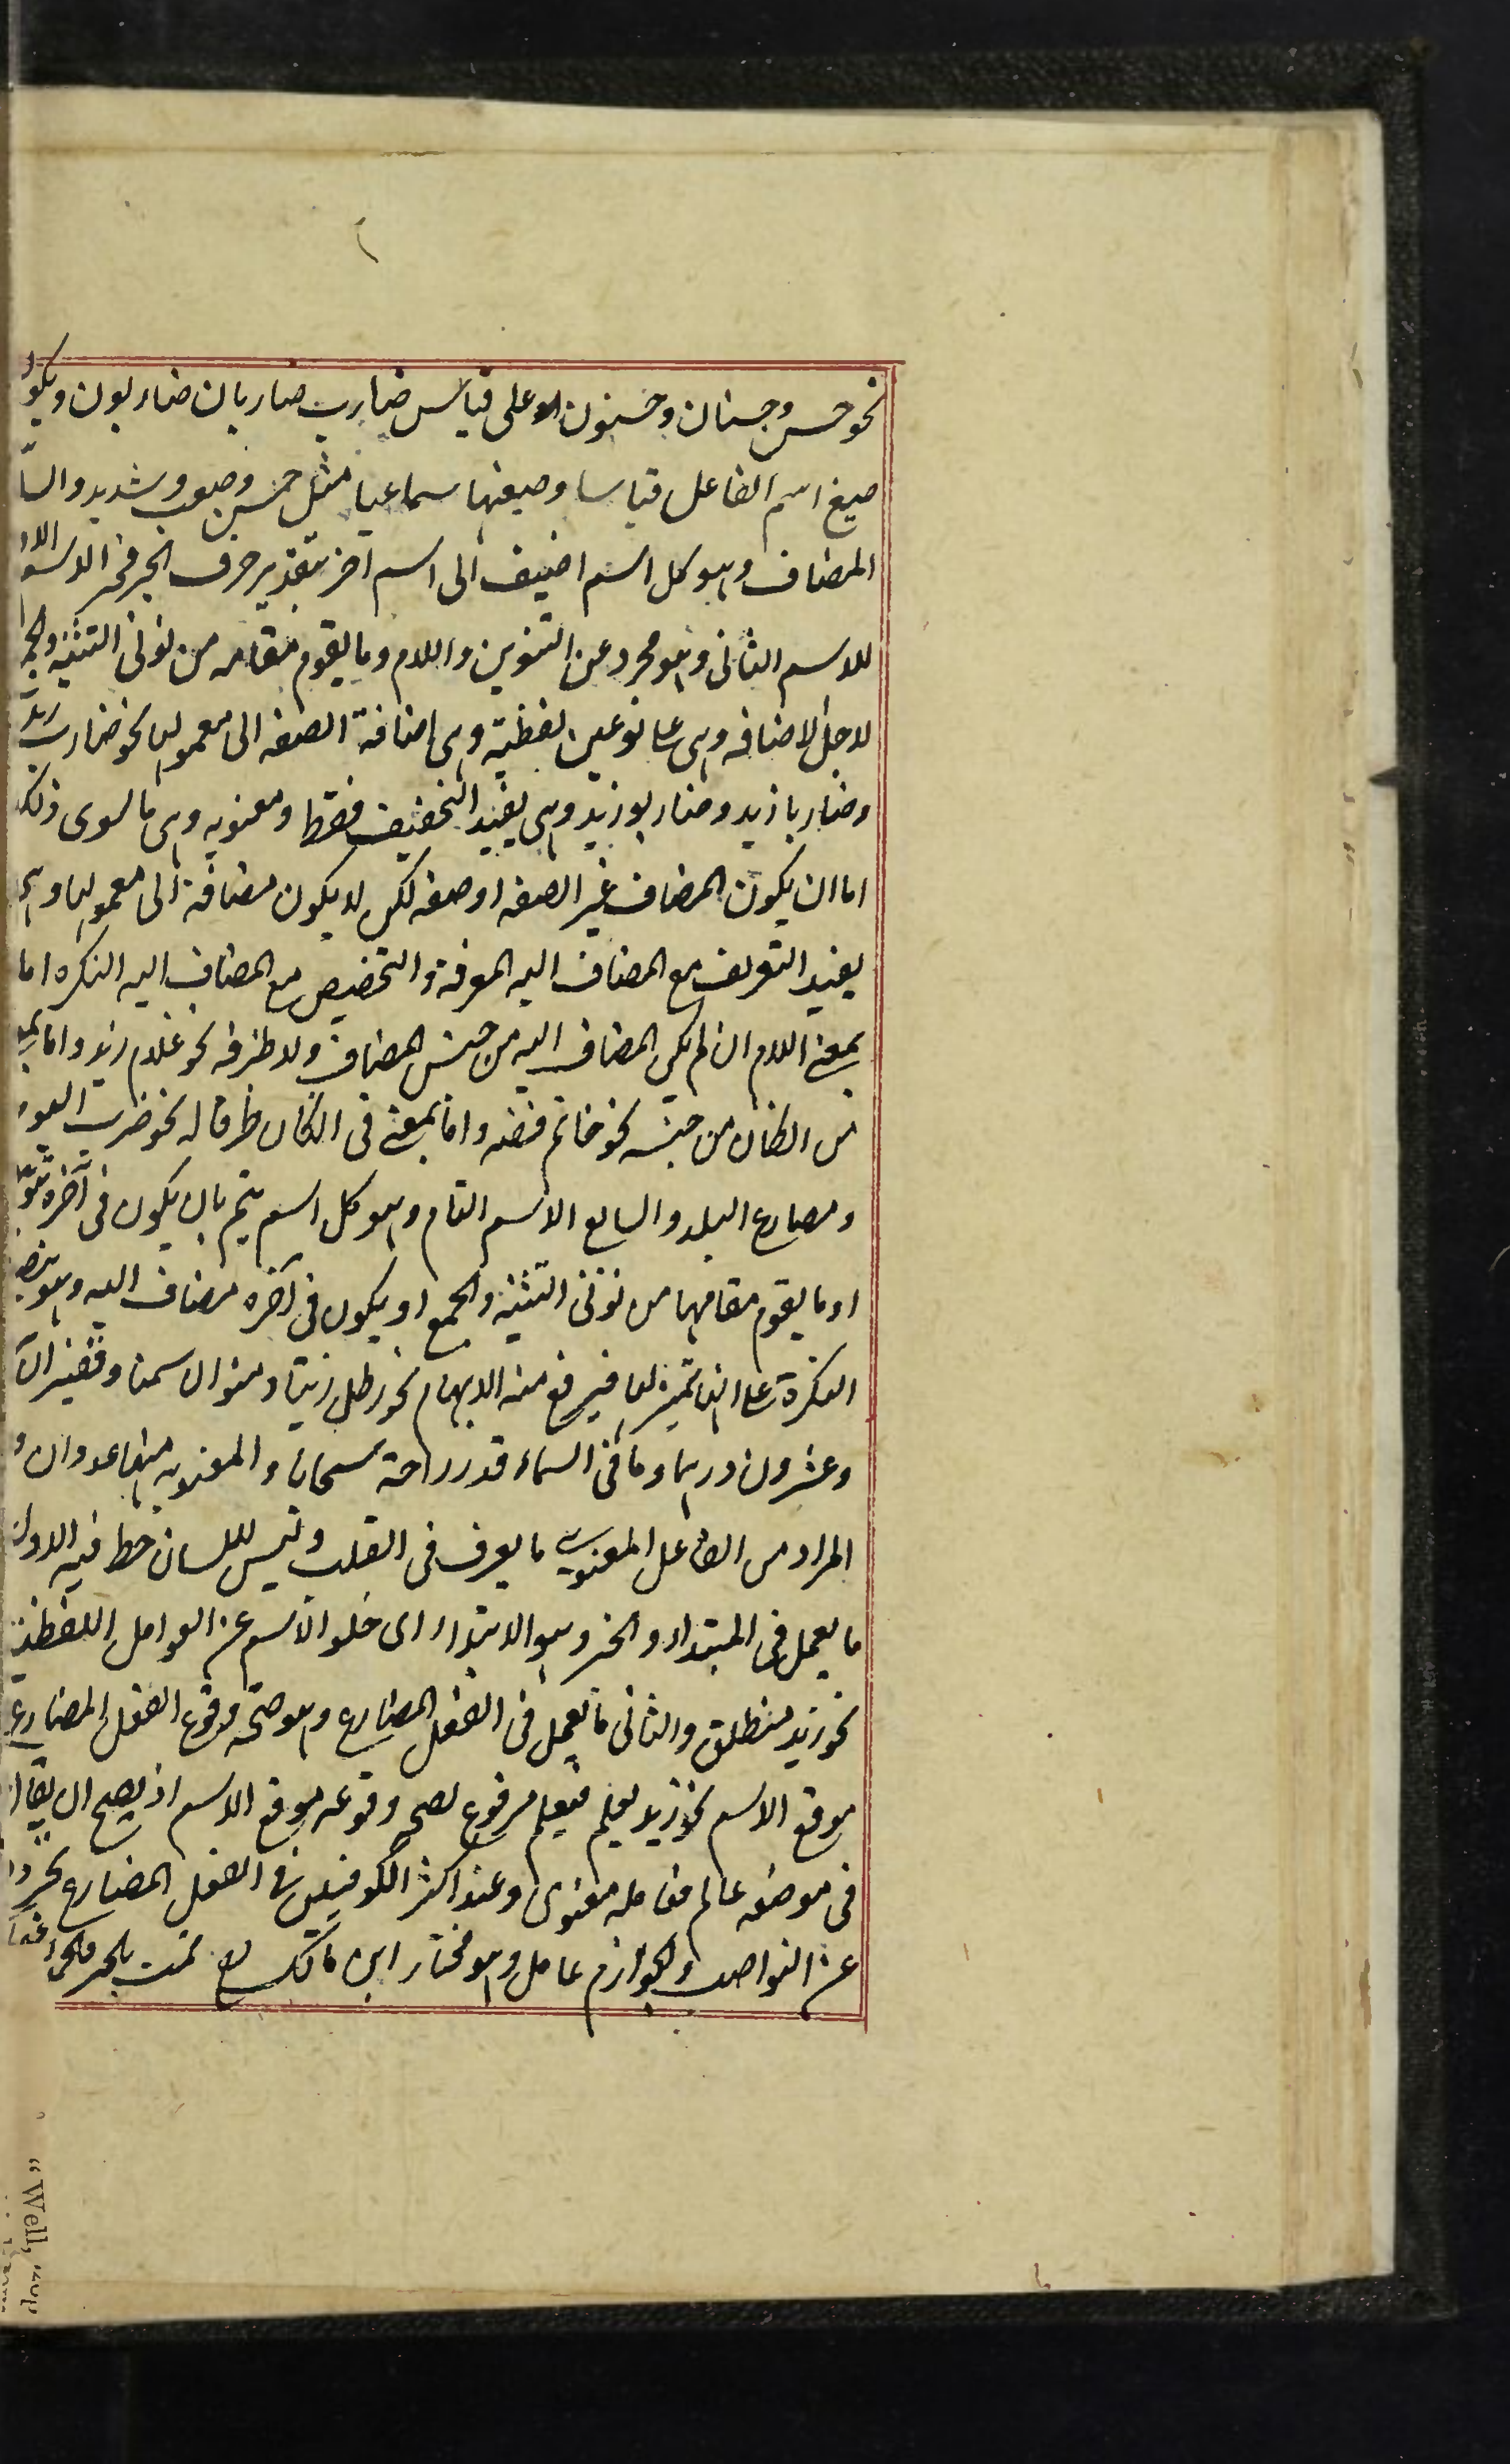 نحو حسن وحسنان وحسنون الا وعلى قياس ضارب ضاربان ضاربون ويكون
صيغ اسم الفاعل قياسا وصيغتها سماعيا مثل حسن وصعب وشديد والسا
المضاف وهو كل اسم اضيف الى اسم اخر بتقدير حرف الجر فجر الاسم الاول
للاسم الثانى وهو مجرد عن التنوين واللام وما يقوم مقامه من نونى التثنيه والجمع
لاجل الاضافه وهى على نوعين لفظية وهى اضافة الصفه الى معمولها نحو ضارب زيد
وضاربا زيد وضاربو زيد وهى يفيد التخفيف فقط ومعنويه وهى ما سوى ذلك
اما ان يكون المضاف غير الصفه او صفه لكن لا يكون مضافة الى معمولها وهى
يفيد التعريف مع المضاف اليه المعرفة والتخصيص مع المضاف اليه النكره اما
بمعنى اللام ان لم يكن المضاف اليه من جنس المضاف ولا ظرفه نحو غلام زيد واما بمعنى
من ان كان من جنسه نحو خاتم فضه واما بمعنى فى ان كان ظرفا له نحو ضرب اليوم
ومصارع البلد والسابع الاسم التام وهو كل اسم يتم بان يكون فى آخره تنوين
او ما يقوم مقامها من نونى التثنيه والجمع او يكون فى آخره مضاف اليه وهو ينصب
النكرة على انها تميز لها فيرفع منه الابهام نحو رطل زيتا ومنوان سمنا وقفيزان
وعشرون درهما وما فى السماء قدر راحة سحابا والمعنويه منها عددان و
المراد من العامل المعنوى ما يعرف فى القلب وليس للسان حظ فيه الاول
ما يعمل فى المبتداء والخبر وهو الابتداء اى خلو الاسم عن العوامل اللفظية
نحو زيد منطلق والثانى ما يعمل فى الفعل المضارع وهو صحة وقوع الفعل المضارع
موقع الاسم نحو زيد يعلم فيعلم مرفوع لصحة وقوعه موقع الاسم اذ يصح ان يقال
فى موضعه عالم فعامله معنوى وعند اكثر الكوفيين فى الفعل المضارع تجرده
عن النواصب والجوازم عامل وهو مختار ابن مالك تمت بالخير
"Well,"